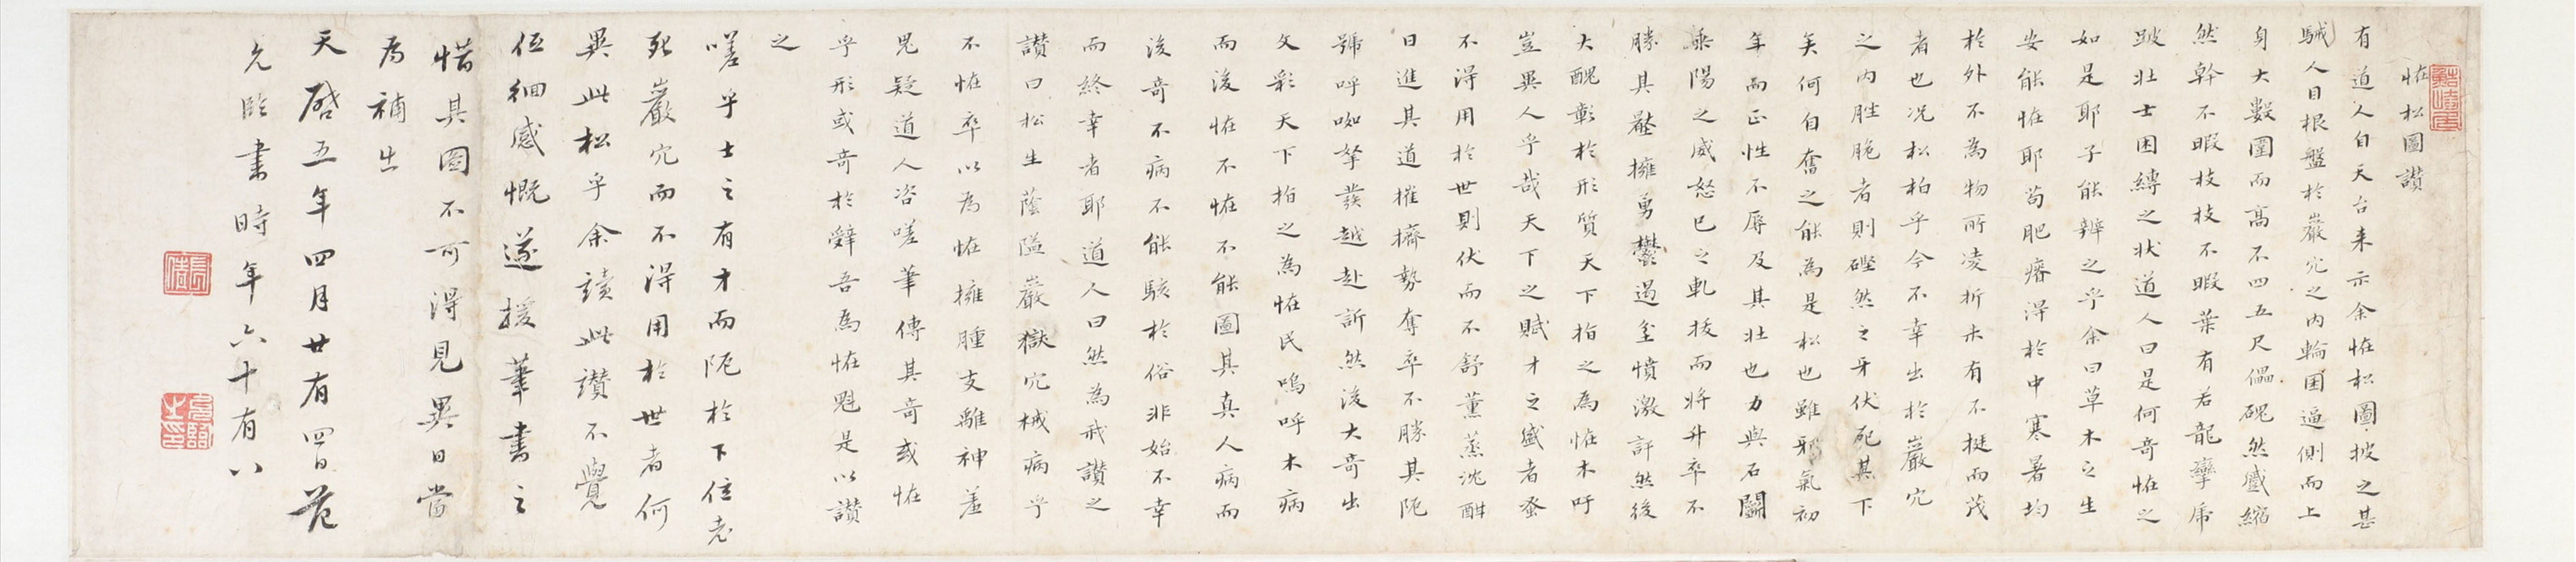 怪松圖讚
有道人自天台来示余怪松圖披之甚
駴人目根盤於巖穴之内輪囷逼側而上
身大數圍而高不四五尺儡磈然蹙縮
然幹不暇枝枝不暇葉有若龍攣虎
跛壯士囚縛之狀道人曰是何奇怪之
如是耶子能辨之乎余曰草木之生
安能怪耶苟肥瘠得於中寒暑均
於外不為物所凌折未有不挺而茂
者也况松柏乎今不幸出於巖穴
之内脞脆者則磴然之牙伏死其下
矣何自奮之能為是松也雖稚氣初
年而正性不辱及其壯也力與石鬪
乘陽之威怒已之軋拔而将升卒不
勝其壓擁勇鬱遏坌憤激訐然後
大醜彰於形質天下指之為怪木吁
豈異人乎哉天下之賦才之盛者蚤
不得用於世則伏而不舒薰蒸沈酣
日進其道摧擠勢奪卒不勝其阨
號呼呶拏發越赴訴然後大奇出
文彩天下指之為怪民嗚呼木病
而後怪不怪不能圖其真人病而
後奇不病不能駭於俗非始不幸
而終幸者耶道人曰然為我讚之
讚曰松生蔭隘巖嶽穴械病乎
不怪卒以為怪擁腫支離神羞
鬼疑道人咨嗟筆傳其奇或怪
乎形或奇於辭吾為怪魁是以讚
之
嗟乎士之有才而阨於下位老
死巖穴而不得用於世者何
異此松乎余讀此讚不覺
低徊感慨遂援筆書之
惜其圖不可得見異日當
為補出
天啓五年四月廿有四日范
允臨書時年六十有八